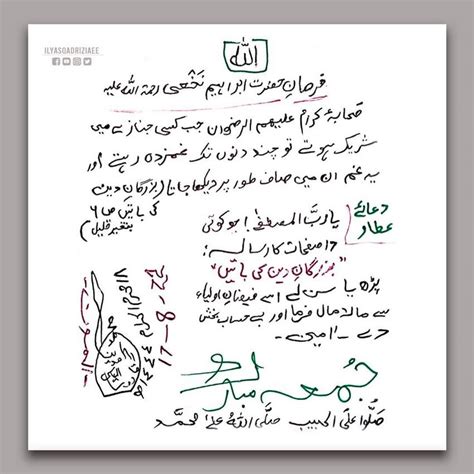 ILYASQADRIZIAEE
اللہ
فرمانِ حضرت ابراہیم نَخَعی رحمۃ اللہ علیہ
صحابۂ کرام علیہم الرضوان جب کسی جنازے میں
شریک ہوتے تو چند دنوں تک غمزدہ رہتے اور
یہ غم ان میں صاف طور پر دیکھا جاتا (بزرگانِ دین
کی باتیں ص ۶
بتغیر قلیل)
دعائے
عطار
یاربَّ المصطفٰے! جو کوئی
صفحات کا رسالہ:
"بزرگانِ دین کی باتیں"
پڑھ یا سن لے اسے فیضانِ اولیاء
سے مالا مال فرما اور بے حساب بخش
دے ۔ اٰمین ۔
جُمعہ مبارک
صَلُّوا عَلَی الحبیب صلَّی اللہُ علٰی محمَّد
۱۸ محرم الحرام
۱۴۴۴ھ
17-8-22